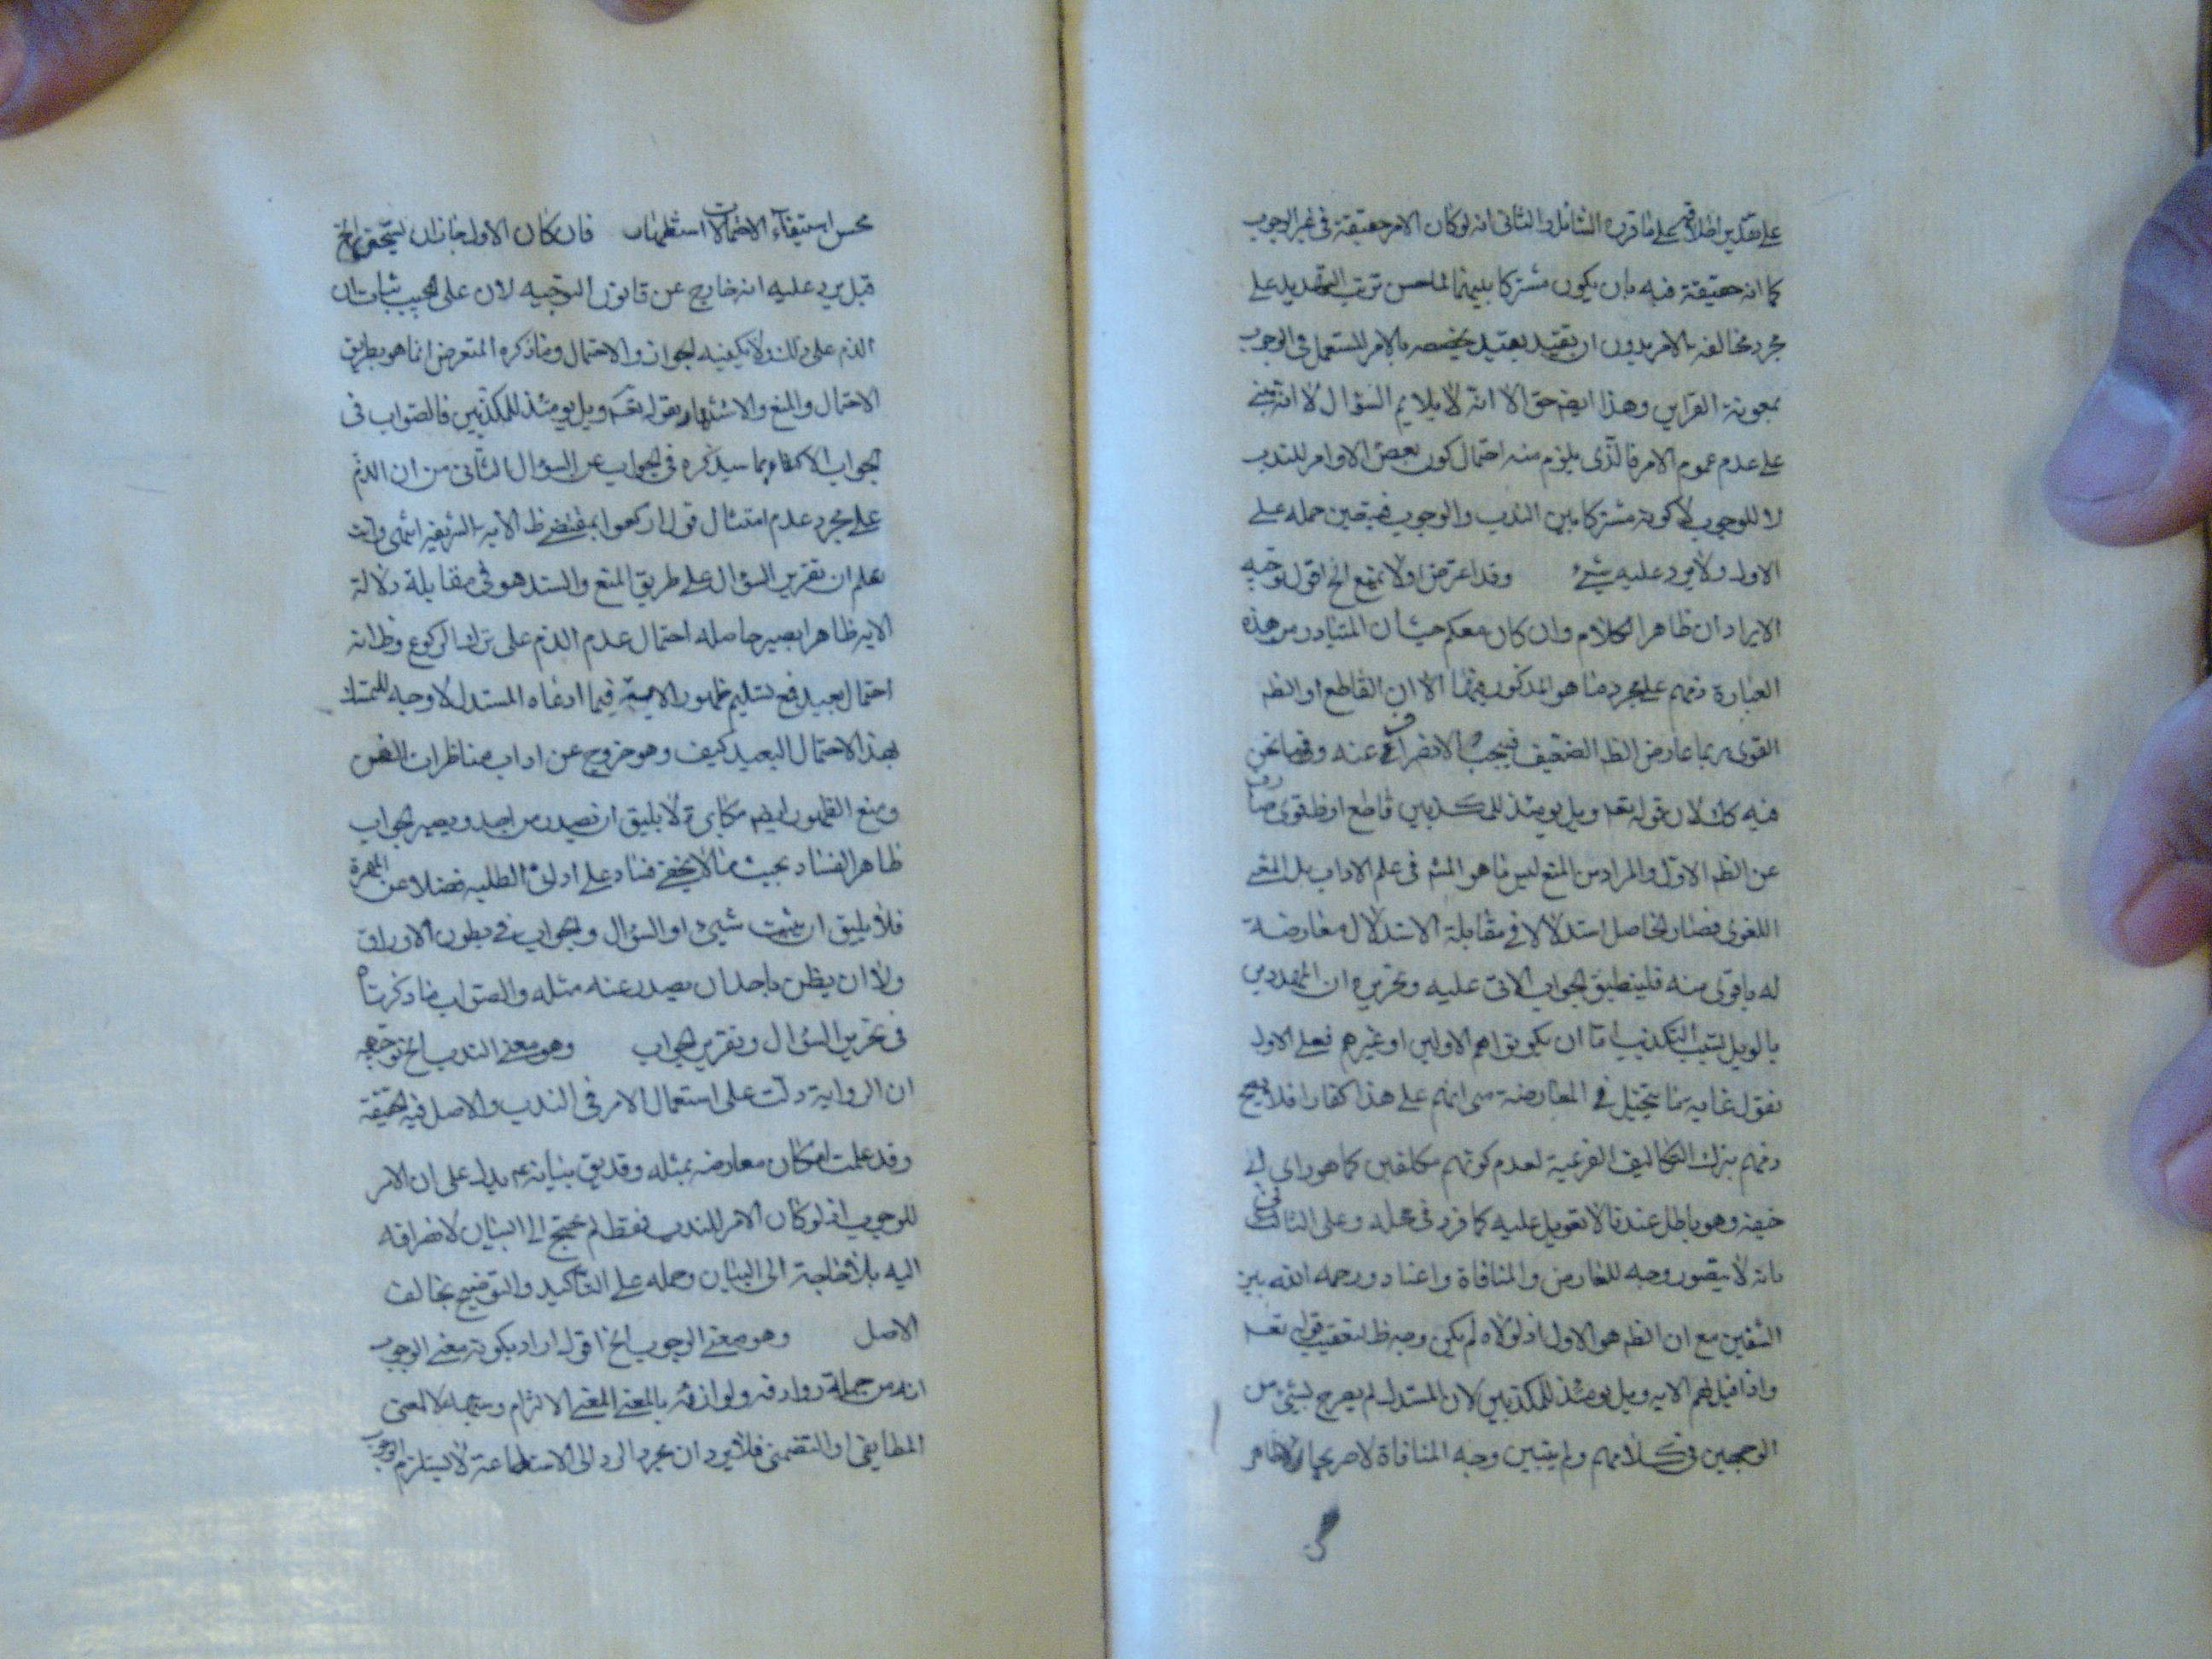 على تقدير اطلاقه على ما قرره الشامل والثانى انه لو كان الامر حقيقة فى غير الوجوب
كما انه حقيقة فيه بان يكون مشتركا بينهما لما حسن ترتب التهديد على
مجرد مخالفة الامر بدون ان يقيد بقيد يخصصه بالامر المستعمل فى الوجوب
بمعونة القراين وهذا ايضا حق الا انه لا يلايم السؤال لا انه مبنى
على عدم عموم الامر فالذى يلزم منه احتمال كون بعض الاوامر للندب
لا للوجوب لا كونه مشتركا بين الندب والوجوب فيتعين حمله على
الاول ولا يرد عليه شىء وقد اعترض اولا بمنع الخ اقول توجيه
الايراد ان ظاهر الكلام وان كان معكم حيث ان المتبادر من هذه
العبارة ذمهم على مجرد ما هو المذكور فيها الا ان القاطع او الظم
القوى ربما عارض الظ الضعيف فيجب الانصراف عنه وفيما نحن
فيه كك لان قوله تعه ويل يومئذ للمكذبين قاطع او ظ قوى صارف
عن الظم الاول والمراد من المنع ليس ما هو المشم فى علم الاداب بل المعنى
اللغوى فصار الحاصل استدلالا فى مقابلة الاستدلال معارضة
له باقوى منه فلينطبق الجواب الاتى عليه وتحريره ان المهددين
بالويل لسبب التكذيب اما ان يكونوا هم الاولين او غيرهم فعلى الاول
نقول غاية ما يتخيل فى المعارضة انهم على هذا كفار فلا يصح
ذمهم بترك التكاليف الفرعية لعدم كونهم مكلفين كما هو راى ابى
حنيفة وهو باطل عندنا لا تعويل عليه كما قرر فى محله وعلى الثانى
بانه لا يتصور وجه للتعارض والمنافاة رحمه الله بين
الشقين مع ان الظم هو الاول اذ لولاه لم يكن وجه ظ لتعقيب قوله تعه
واذا قيل لهم الايه ويل يومئذ للمكذبين لان المستدل لم يعرج لشىء من
الوجهين فى كلامهم ولم يتبين وجه المنافاة لا صريحا ولا ظاهرا
يحسن استيفاء الاحتمالات استظهارا فان كان الاول جاز ان يستحقوا الخ
قيل يرد عليه انه خارج عن قانون التوجيه لان على المجيب اثبات ان
الذم على ذلك ولا يكفيه الجواز والاحتمال وما ذكره المتعرض انما هو بطريق
الاحتمال والمنع والاستشهاد بقوله تعه ويل يومئذ للمكذبين فالصواب فى
الجواب الاكتفاء بما سيذكره فى الجواب عن السؤال الثانى من ان الذم
على مجرد عدم امتثال قول اركعوا بمقتضى ظ الايه الشريفه انتهى وانت
تعلم ان تقرير السؤال على طريق المنع والسند هو فى مقابلة دلالة
الايه ظاهرا يصير حاصله احتمال عدم الذم على ترك الركوع وظ انه
احتمال بعيد فمع تسليم ظهور الايه فيما ادعاه المستدل لا وجه للتمسك
بهذا الاحتمال البعيد كيف وهو خروج عن اداب مناظرات الفن
ومنع الظهور ايضا مكابرة لا يليق ان تصدر من احد ويصير الجواب
ظاهر الفساد بحيث لا يخفى فساده على ادنى الطلبه فضلا عن المهرة
فلا يليق ان يثبت شىء او السؤال والجواب فى بطون الاوراق
ولا ان يظن باحد ان يصدر عنه مثله والصواب ما ذكرناه
فى تحرير السؤال وتقرير الجواب وهو معنى الندب الخ توجيهه
ان الرواية دلت على استعمال الامر فى الندب والاصل فيه الحقيقة
وقد علمت امكان معارضه بمثله وقد يق بيانه عم يدل على ان الامر
للوجوب اذ لو كان الامر للندب فقط لم يحتج الى البيان لانصرافه
اليه بلا حاجة الى البيان وحمله على التاكيد والتوضيح يخالف
الاصل وهو معنى الوجوب الخ اقول اراد بكونه معنى الوجوب
انه من جملة روادفه ولوازمه بالمعنى المعنى الالتزام لا المعنى
المطابقى او التضمنى فلا يرد ان مجرد الرد الى الاستطاعة لا يستلزم الوجوب